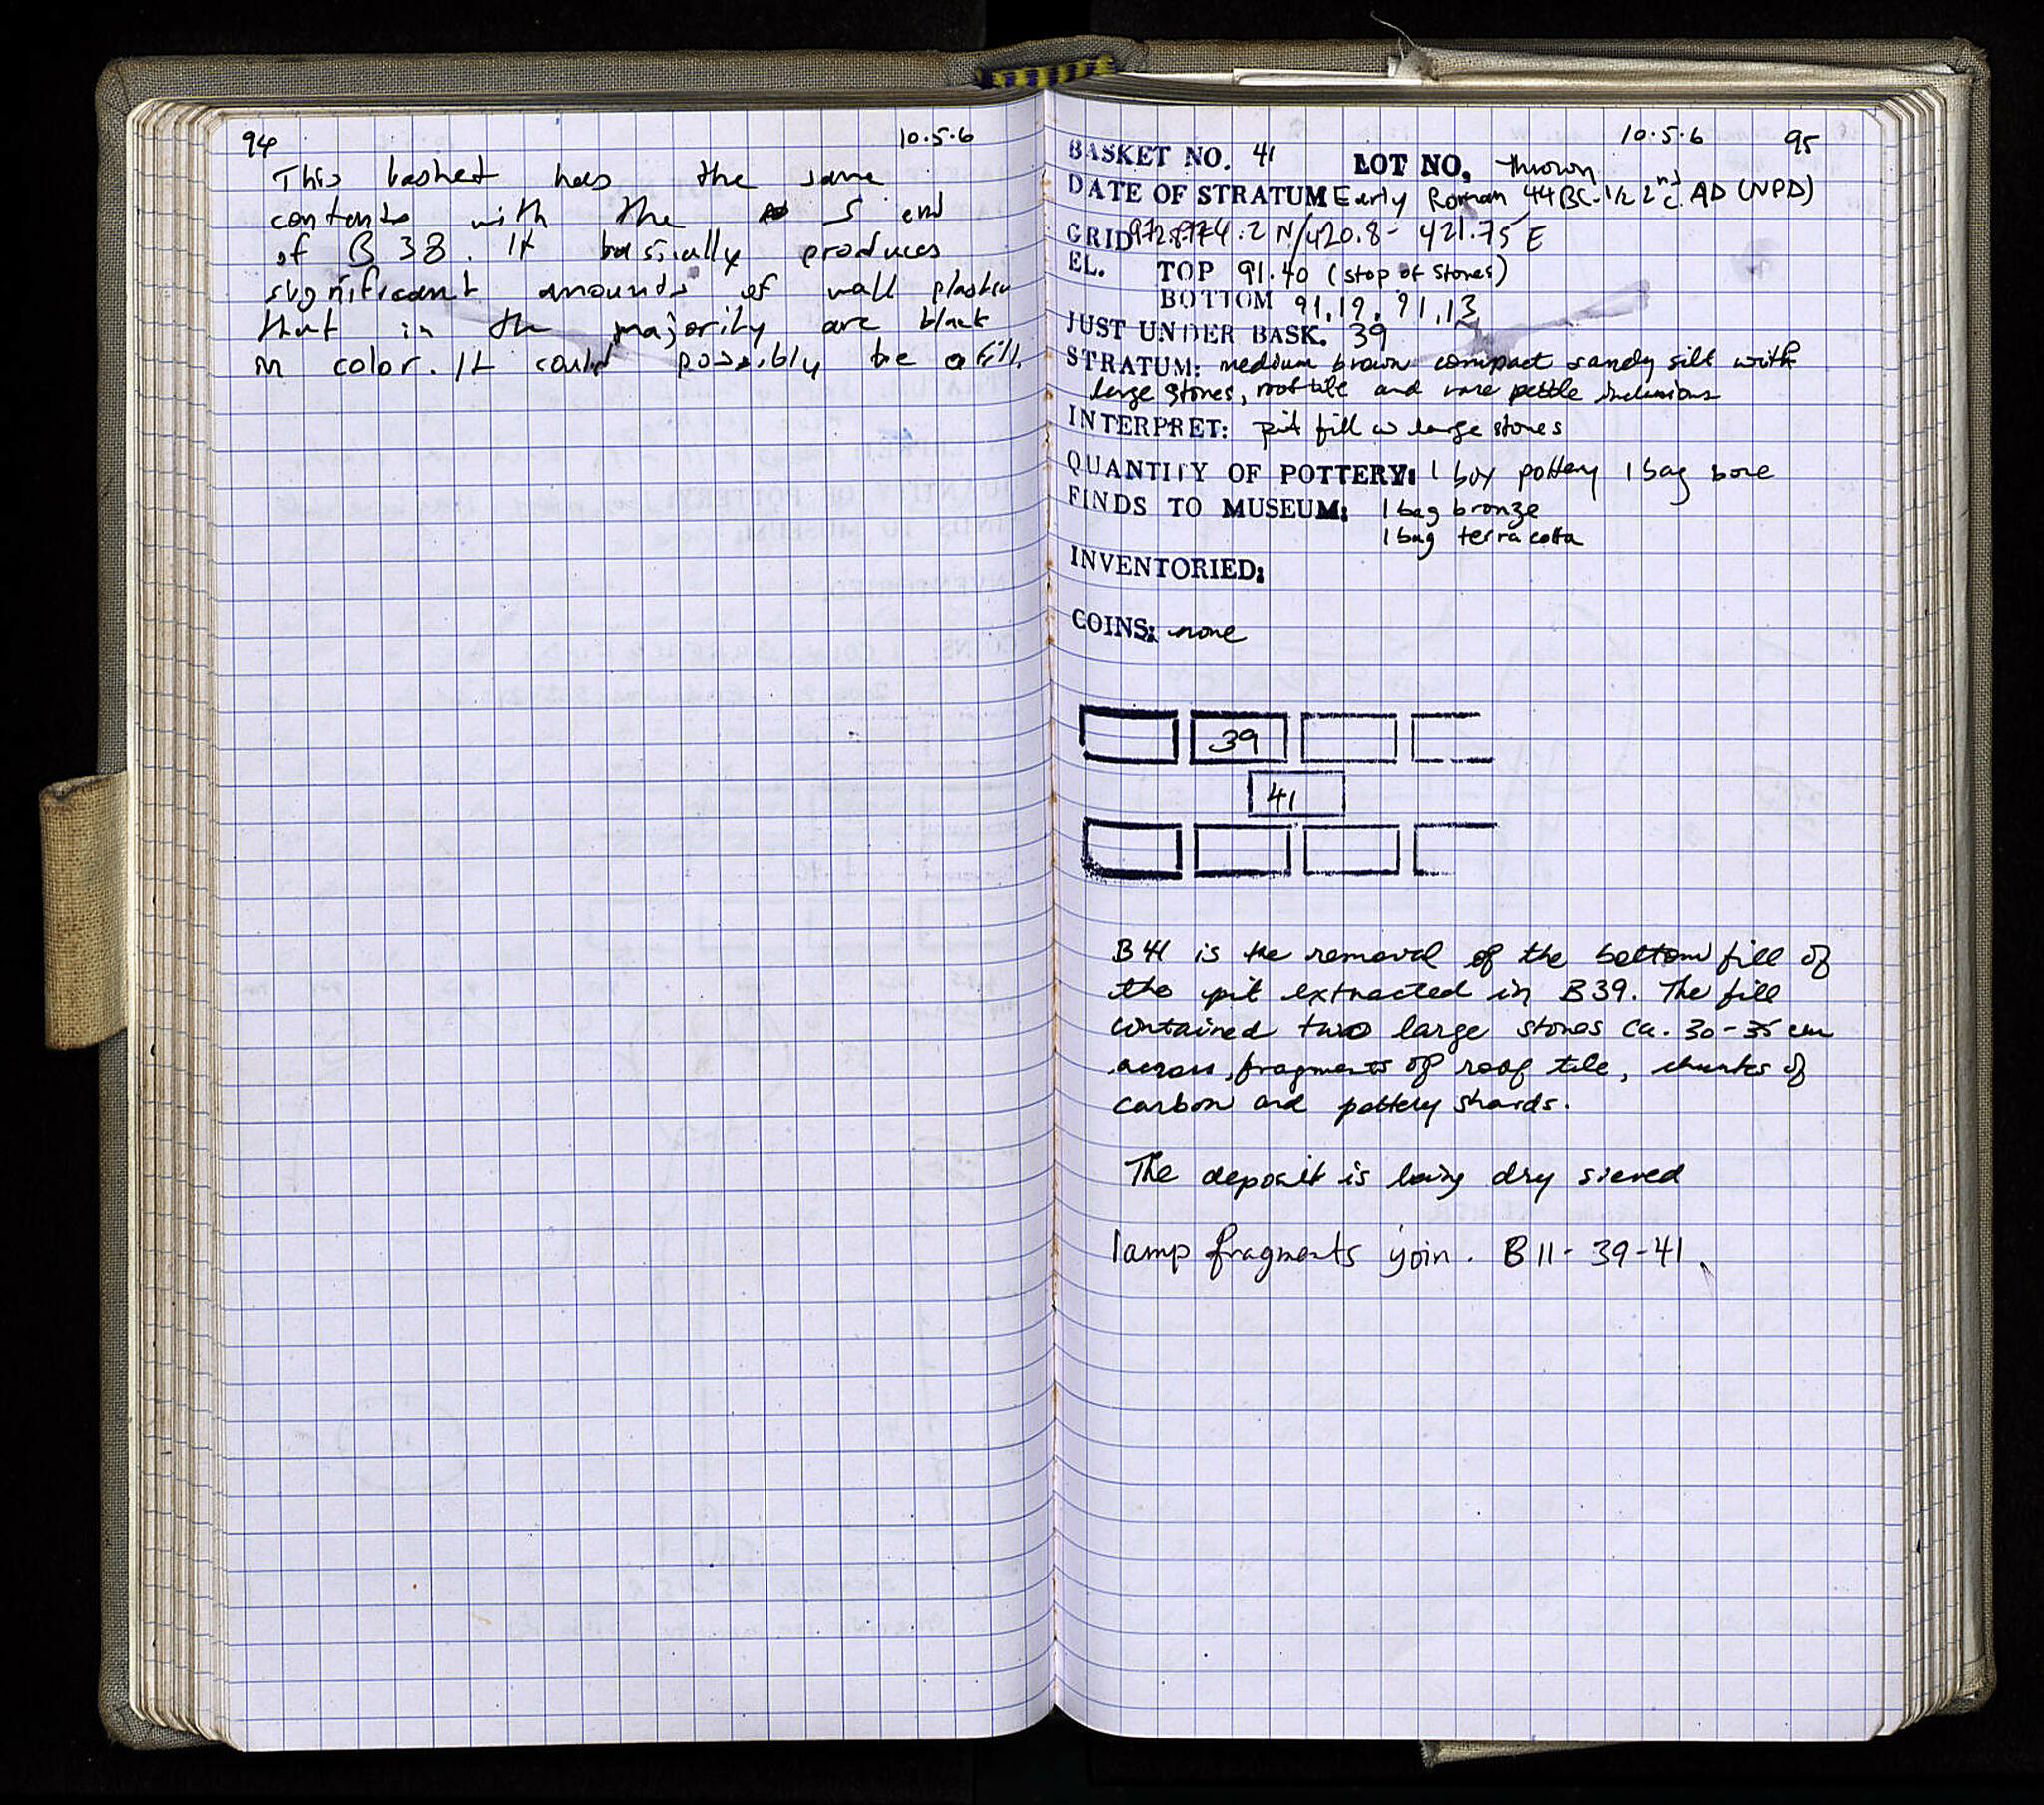 94
10.5.6
This basket has the same
contents with the S end
of B 38. It bassically produces
significant amounds of wall plaster
that in the majority are black
in color. It could possibly be a fill.
10.5.6 95
BASKET NO. 41 LOT NO. thrown
DATE OF STRATUM Early Roman 44 BC - 1/2 2nd c. AD (NPD)
GRID 974.2 N/420.8 - 421.75 E
EL. TOP 91.40 (stop of stones)
BOTTOM 91.19, 91.13
JUST UNDER BASK. 39
STRATUM: medium brown compact sandy silt with
large stones, rooftile and rare pebble inclusions
INTERPRET: pit fill w large stones
QUANTITY OF POTTERY: 1 box pottery 1 bag bone
FINDS TO MUSEUM: 1 bag bronze
1 bag terracotta
INVENTORIED:
COINS: none
39
41
B 41 is the removal of the bottom fill of
the pit extracted in B39. The fill
contained two large stones ca. 30-35 cm
across, fragments of roof tile, chunks of
carbon and pottery shards.
The deposit is being dry sieved
lamp fragments join. B 11 - 39 - 41.